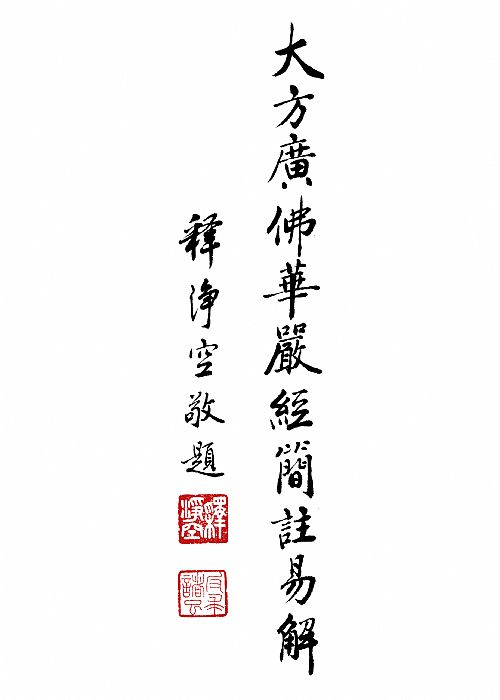 大方廣佛華嚴經簡註易解
釋淨空敬題
釋淨空